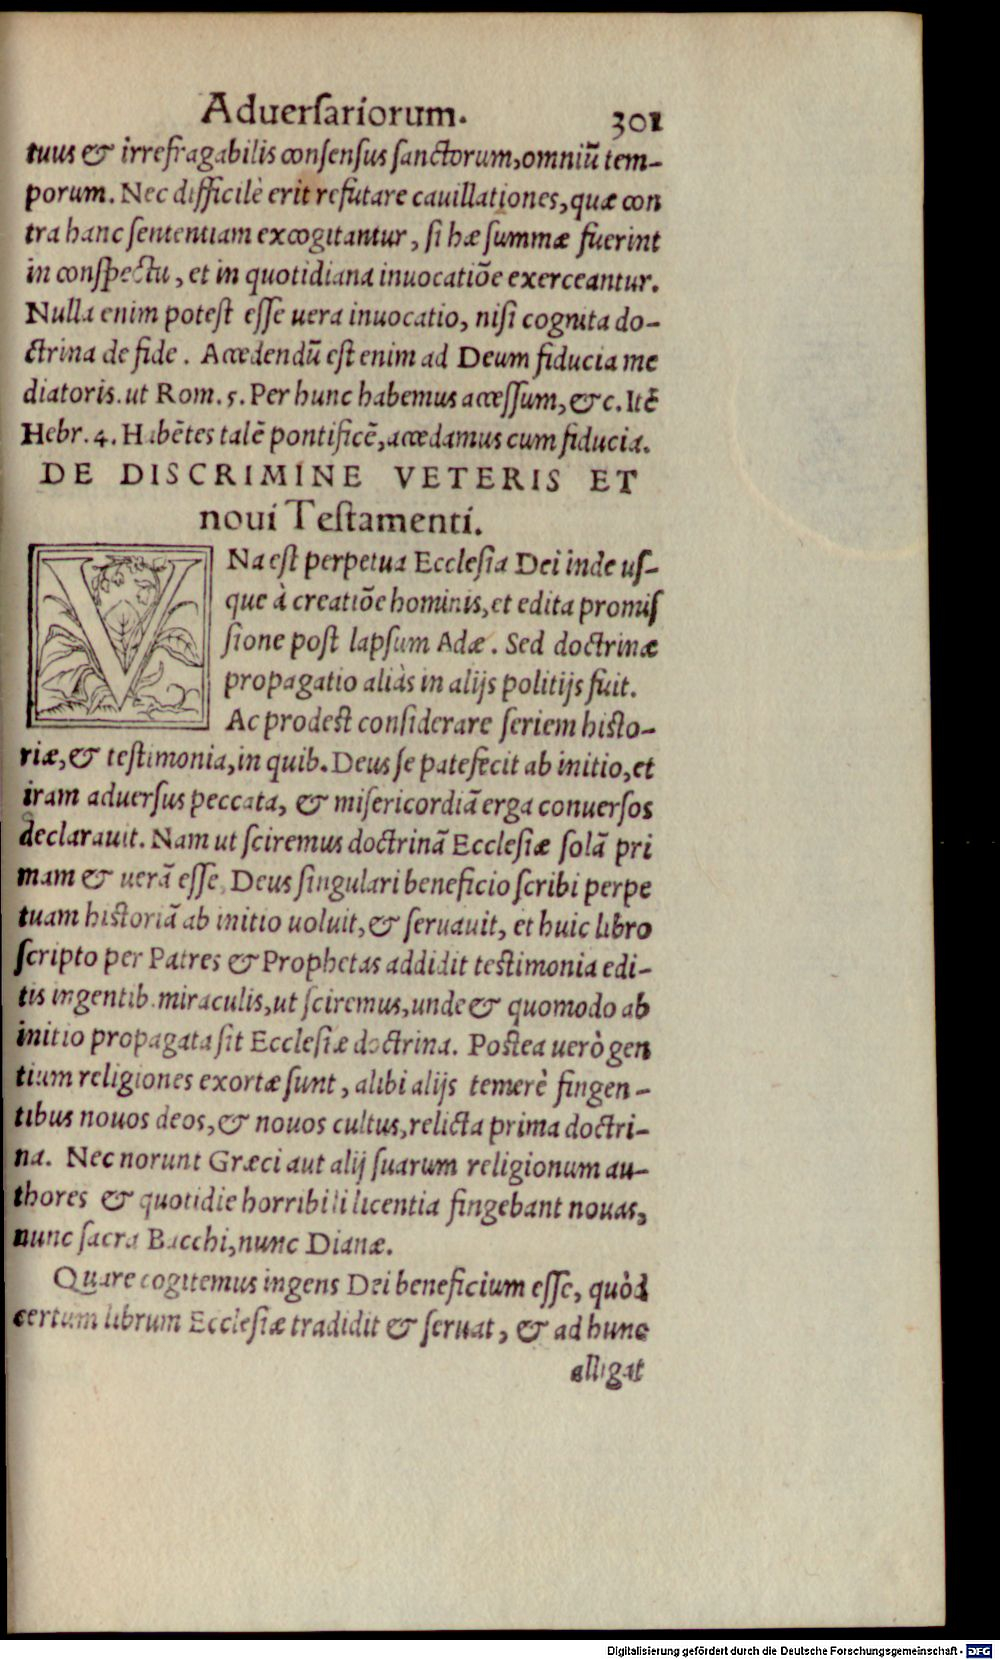 Aduerſariorum. 301
tuus & irrefragabilis conſenſus ſanctorum, omniũ tem-
porum. Nec difficilè erit refutare cauillationes, quæ con
tra hanc ſententiam excogitantur, ſi hæ ſummæ fuerint
in conſpectu, et in quotidiana inuocatiõe exerceantur.
Nulla enim poteſt eſſe uera inuocatio, niſi cognita do-
ctrina de fide. Accedendũ eſt enim ad Deum fiducia me
diatoris. ut Rom. 5. Per hunc habemus acceſſum, &c. Itẽ
Hebr. 4. Habẽtes talẽ pontificẽ, accedamus cum fiducia.
DE DISCRIMINE VETERIS ET
noui Teſtamenti.
VNa eſt perpetua Eccleſia Dei inde uſ-
que à creatiõe hominis, et edita promiſ
ſione poſt lapſum Adæ. Sed doctrinæ
propagatio aliàs in alijs politijs fuit.
Ac prodeſt conſiderare ſeriem hiſto-
riæ, & teſtimonia, in quib. Deus ſe patefecit ab initio, et
iram aduerſus peccata, & miſericordiã erga conuerſos
declarauit. Nam ut ſciremus doctrinã Eccleſiæ ſolã pri
mam & uerã eſſe, Deus ſingulari beneficio ſcribi perpe
tuam hiſtoriã ab initio uoluit, & ſeruauit, et huic libro
ſcripto per Patres & Prophetas addidit teſtimonia edi-
tis ingentib. miraculis, ut ſciremus, unde & quomodo ab
initio propagata ſit Eccleſiæ doctrina. Poſtea uerò gen
tium religiones exortæ ſunt, alibi alijs temerè fingen-
tibus nouos deos, & nouos cultus, relicta prima doctri-
na. Nec norunt Græci aut alij ſuarum religionum au-
thores & quotidie horribili licentia fingebant nouas,
nunc ſacra Bacchi, nunc Dianæ.
Quare cogitemus ingens Dei beneficium eſſe, quòd
certum librum Eccleſiæ tradidit & ſeruat, & ad hunc
alligat
Digitalisierung gefördert durch die Deutsche Forschungsgemeinschaft - DFG